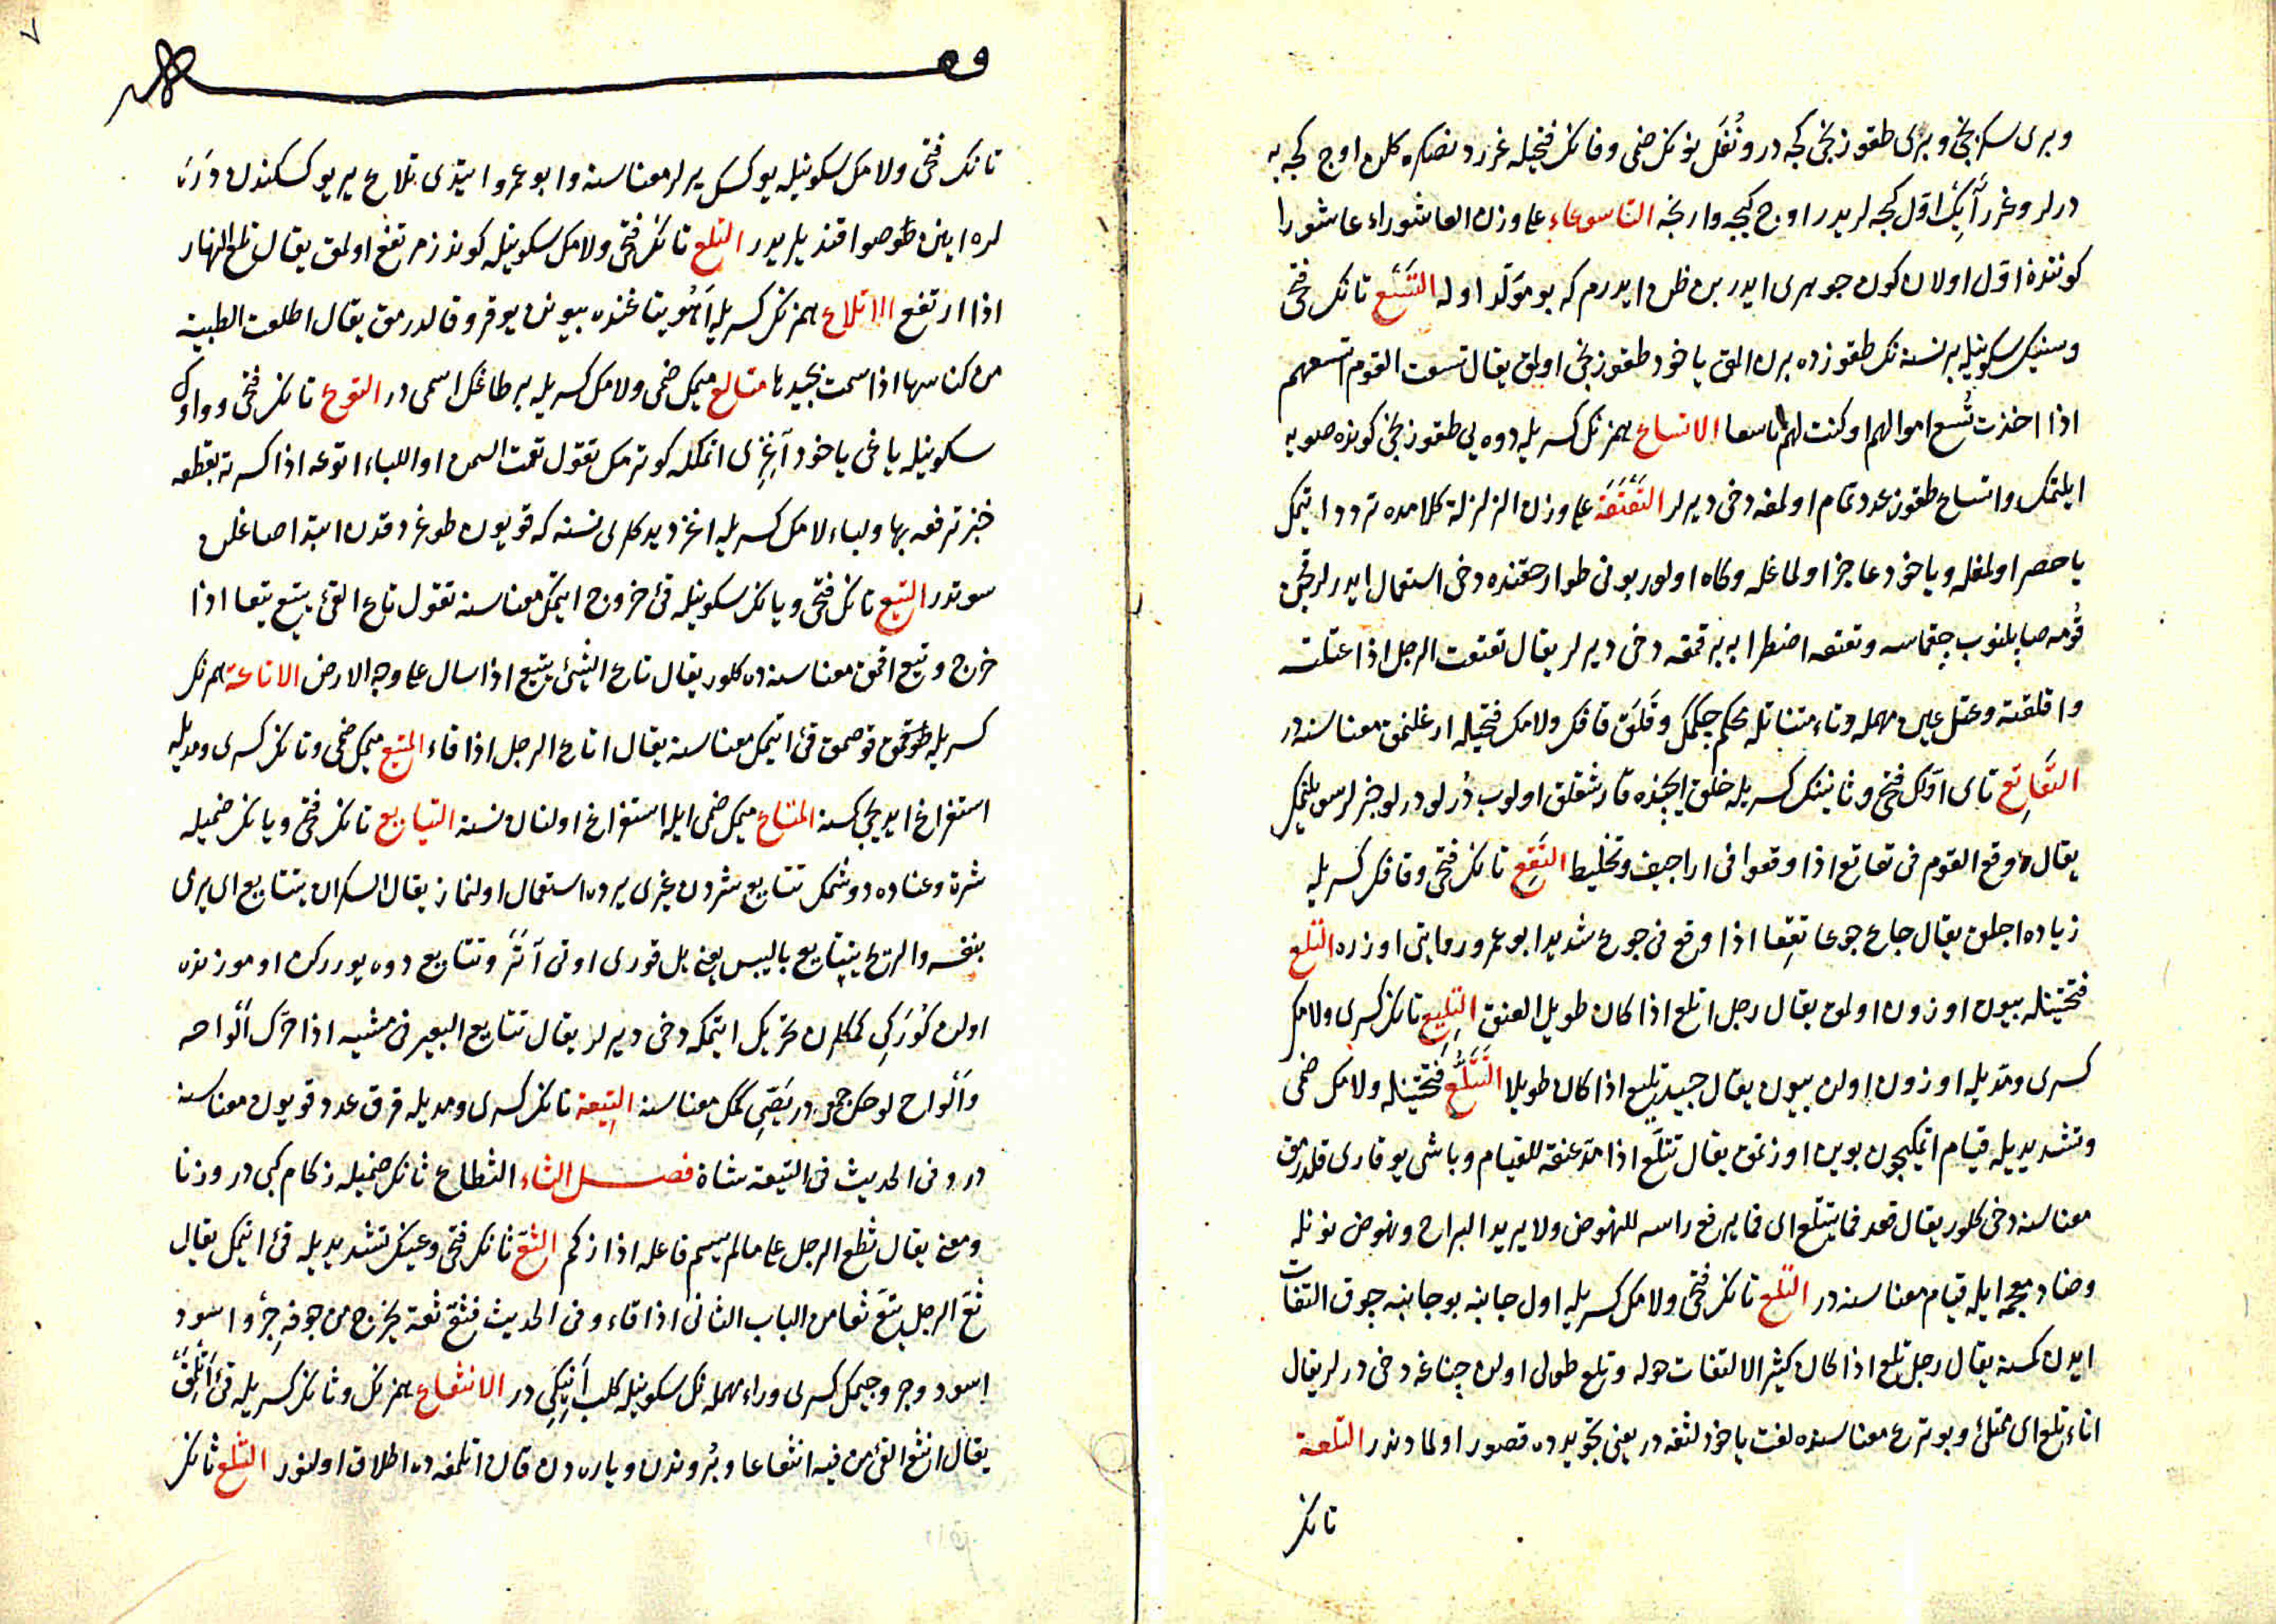 وبری سکزنجی و بری طقوزنجی کجه در ونُفَل نونك ضمی وفانك فتحیله غرردنصکره کلن اوج کجه یه
درلر وغرر آیك اوّل کجه لریدر اوج کیجه وارنجه التاسوعاء علی وزن العاشوراء عاشورا
کوننده اوّل اولان کون جوهری ایدر بن ظن ایدرم که بو مولّد اوله التَّسْع تانك فتحی
وسینك سکونیله برنسنه نك طقوزده برن المق یاخود طقوزنجی اولمق یقال تسعت القوم اتسعهم
اذا اخذت تُسع اموالهم او کنت لهم تاسعا الاتساع همزنك کسریله دوه یی طقوزنجی کونده صویه
ایلتمك واتساع طقوز عدد تمام اولمغه دخی دیرلر التَّعْتَعَة علی وزن الزلزلة کلامده تردد ایتمك
یا حصر اولمغله ویاخود عاجز اولماغله وکاه اولور بونی طوار حقنده دخی استعمال ایدرلر قچن
قُومه صپلنوب چقماسه وتعتعه اضطرابه یر قمقه دخی دیرلر یقال تعتعت الرجل اذا عتلته
واقلقته وعتل عین مهمله وتاء مثناتله محکم چکمك وقَلَق قافك ولامك فتحیله ارغلنمق معناسنه در
التَّعَاتِع تای اوّلك فتحی وثانینك کسریله خلق ایچنده قارشقلق اولوب دُرلو درلو خبرلر سویلنمك
یقال وقع القوم فی تعاتع اذا وقعوا فی اراجیف وتخلیط التَّقِع تانك فتحی وقافك کسریله
زیاده اجلق یقال جاع جوعا تَقِعا اذا وقع فی جوع شدید ابو عمرو روایتی اوزره التلع
فتحتینله بیون اوزون اولمق یقال رجل اتلع اذا کان طویل العنق التلیع تانك کسری ولامك
کسری ومدّیله اوزون اولن بیون یقال جید تلیع اذا کان طویلا التَّتَلُّع فتحتینله ولامك ضمی
وتشدیدیله قیام اتمکیچون بوین اوزتمق یقال تتلَّع اذا مدّ عنقه للقیام وباشی یوقاری قلدرمق
معناسنه دخی کلور یقال قعد فما یتتلع ای فما یرفع راسه للنهوض ولا یرید البراح ونهوض نونله
وضاد معجمه ایله قیام معناسنه در التلع تانك فتحی ولامك کسریله اول جانبه بوجانبه چوق التفات
ایدن کمسنه یقال رجل تلع اذا کان کثیر الالتفات حوله وتلع طولی اولن چناغه دخی درلر یقال
اناء تلع ای ممتلئ وبو ترع معناسنده لغت یاخود لثغه در یعنی تجویدده قصور اولمادندر التلعة
تانك
تانك فتحی ولامك سکونیله یوکسك یرلر معناسنه وابو عمرو ایتدی تلاع یر یوکسکندن دَرَه
لره اینن طوصو اقندیلریدر التلع تانك فتحی ولامك سکونیله کوندز مرتفع اولمق یقال تلع النهار
اذا ارتفع الاتلاع همزنك کسریله آهُو یتاغنده بیونن یوقرو قالدرمق یقال اطلعت الظبیة
من کناسها اذا سمت بجیدها متالع میمك ضمی ولامك کسریله بر طاغك اسمی در التوع تانك فتحی وواوك
سکونیله یاغی یاخود آغزی اتمکله کوترمك تقول تعت السمن او اللباء اتوعه اذا کسرته بقطعة
خبز ترفعه بها ولباء لامك کسریله اغز دیدکلری نسنه که قویون طوغردقدن ابتدا صاغلن
سوتدر التیع تانك فتحی ویانك سکونیله قئ خروج ایتمك معناسنه تقول تاع القئ یتیع تیعا اذا
خرج وتیع اقمق معناسنه ده کلور یقال تاع الشیئ یتیع اذا سال علی وجه الارض الاتاعة همزنك
کسریله طوقمق قوصمق قئ ایتمك معناسنه یقال اتاع الرجل اذا قاء المتیع میمك ضمی وتانك کسری ومدّیله
استفراغ ایدیجی کمسنه المتاع میمك ضمی ایله استفراغ اولنان نسنه التتایع تانك فتحی ویانك ضمیله
شرة وعناده دوشمك تتایع شردن غیری یرده استعمال اولنماز یقال السکران یتتایع ای یرمی
بنفسه والریح یتتایع بالیبس یعنی یل قوری اوتی آتَرْ وتتایع دوه یوررکن اوموزنده
اولن کُورَکی کمکلرن تحریك ایتمکه دخی دیرلر یقال تتایع البعیر فی مشیه اذا حرّك الواحه
وألواح لوحك جمعی در یَصّی کمك معناسنه التِیعة تانك کسری ومدیله قرق عدد قویون معناسنه
در وفی الحدیث فی التیعة شاة فصل الثاء الثطاع ثانك ضمیله زکام کبی در وزنا
ومعنی یقال ثطع الرجل علی ما لم یسم فاعله اذا زکم الثع ثانك فتحی وعینك تشدیدیله قئ ایتمك یقال
ثعّ الرجل یثعّ ثعا من الباب الثانی اذا قاء وفی الحدیث فثعّ ثعة یخرج من جوفه جرو اسود
اسود وجرو جیمك کسری وراء مهمله نك سکونیله کلب انیکی در الانثعاع همزنك وثانك کسریله قئ
یقال انثع القئ من فیه انثعاعا وبُروندن ویاره دن قان اتلمغه ده اطلاق اولنور الثلع ثانك